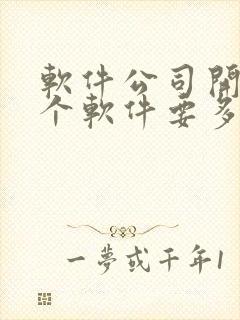 軟件公司開
个軟件要多
一夢或千年1